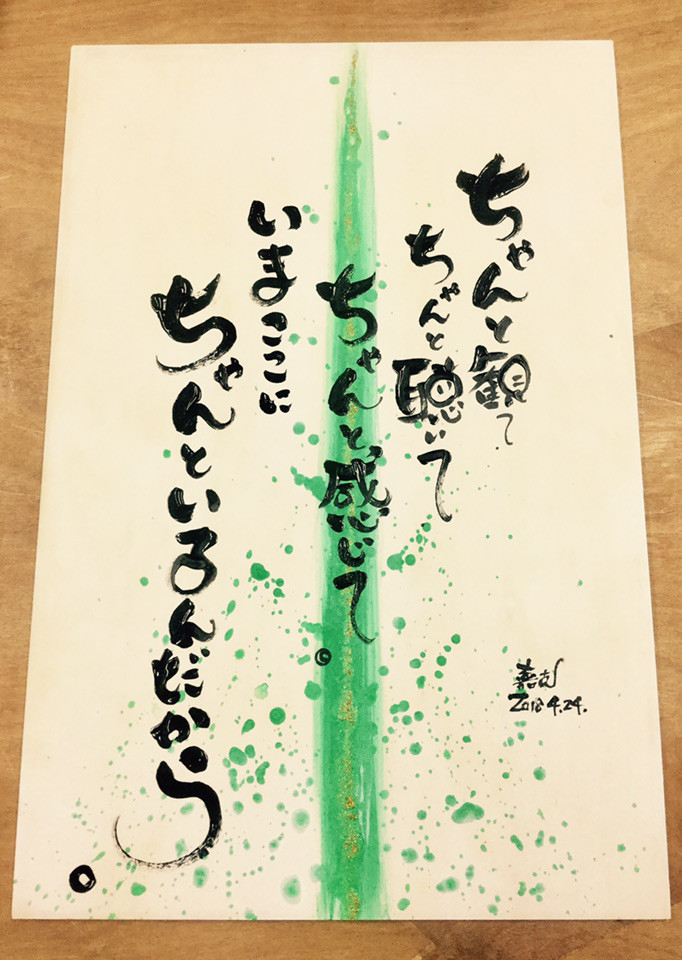 ちゃんと観て
ちゃんと聴いて
ちゃんと感じて。
いまここに
ちゃんといるんだから。
2018 4.24.